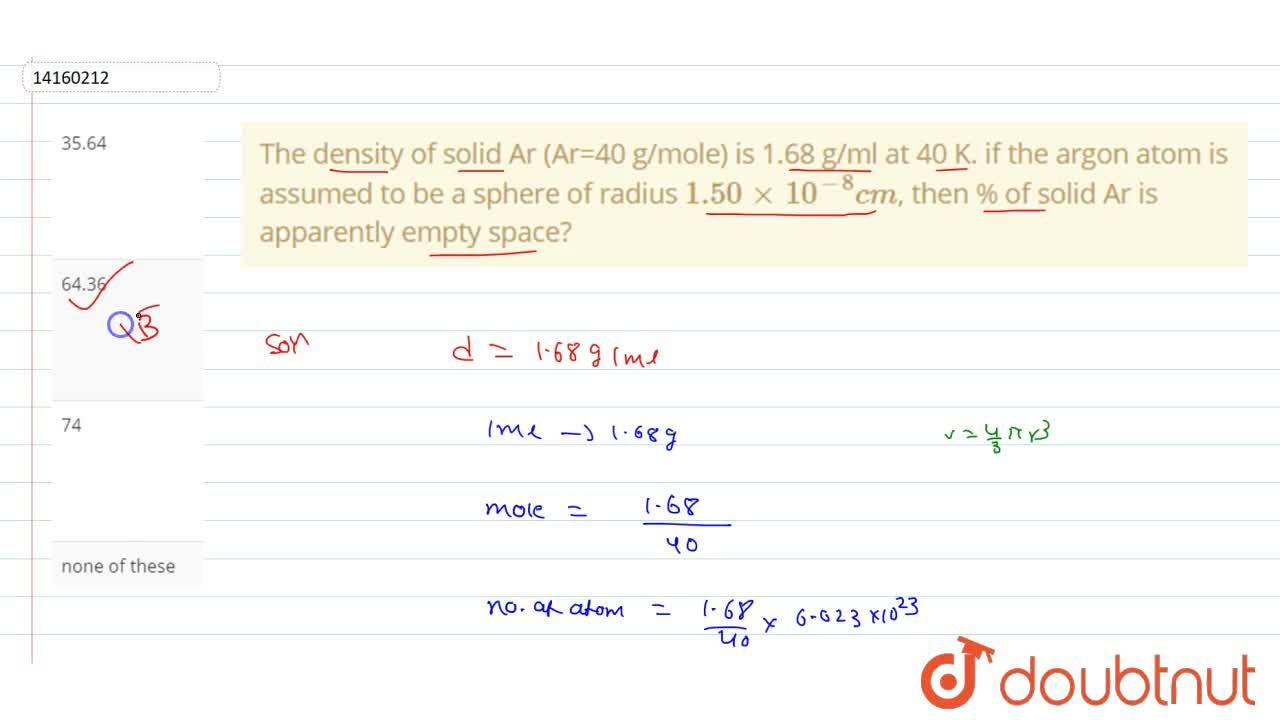 14160212
35.64
The density of solid Ar (Ar=40 g/mole) is 1.68 g/ml at 40 K. if the argon atom is
assumed to be a sphere of radius 1.50 × 10⁻⁸cm, then % of solid Ar is
apparently empty space?
64.36
B
Soln
d = 1.68 g/ml
74
1ml → 1.68g
v = 4/3 π r³
mole = 1.68/40
none of these
no. of atom = 1.68/40 × 6.023 × 10²³
doubtnut